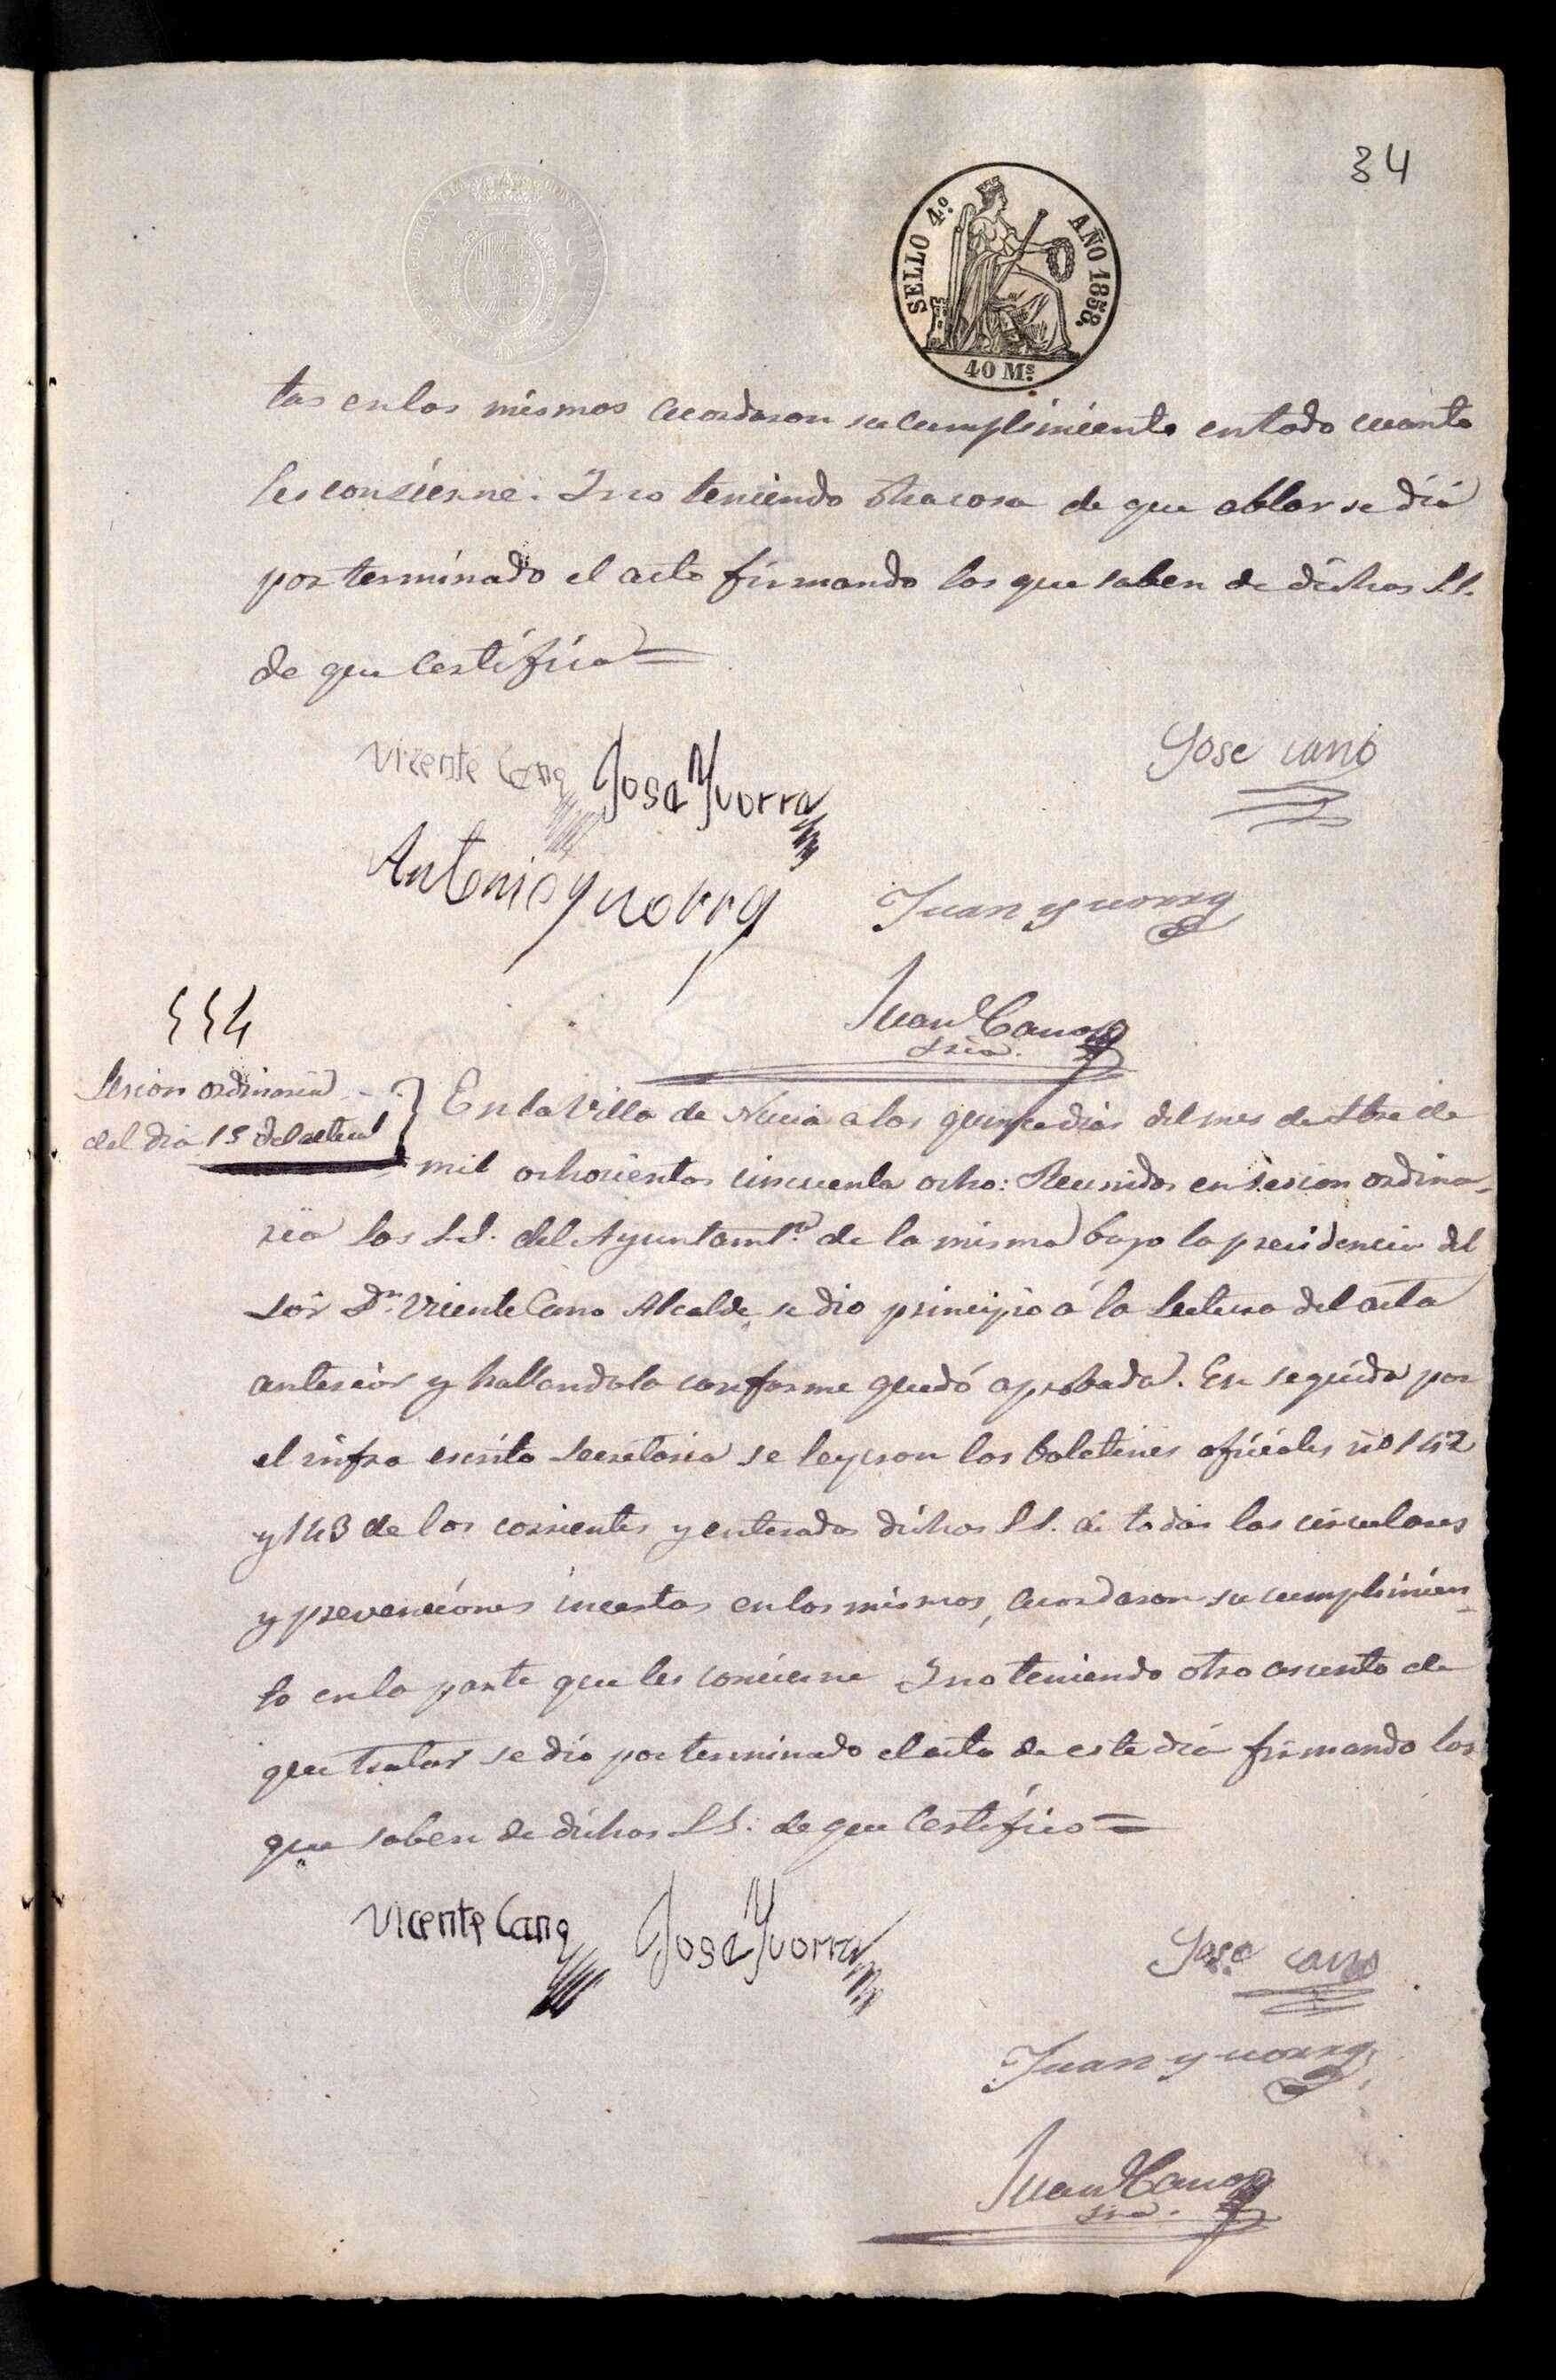 34
SELLO 4.º AÑO 1858.
40 Ms.
tas en los mismos acordaron su cumplimiento en todo cuanto
les consierne. Y no teniendo otra cosa de que ablar se dió
por terminado el acto firmando los que saben de dichos S.S.
de que Certifico =
Vicente Cano Jose Yvorra Jose cano
Antonio yvorra Juan yvorra
Juan Cano
Srio.
Sesion ordinaria
del dia 15 del actual
En la Villa de Nucia a los quince dias del mes de Sbre de
mil ochocientos cincuenta ocho: Reunidos en sesion ordina-
ria los S.S. del Ayuntamto. de la misma bajo la presidencia del
Sor Dn. Vicente Cano Alcalde se dio principio á la Lectura del acta
anterior y hallandola conforme quedó aprobada. En seguida por
el infra escrito Secretario se leyeron los boletines oficiales no 142
y 143 de los corrientes y enterados dichos S.S. de todas las circulares
y prevenciones incertas en los mismos, acordaron su cumplimien-
to en la parte que les concierne Y no teniendo otro asunto de
que tratar se dio por terminado el acto de este dia firmando los
que saben de dichos S.S. de que Certifico =
Vicente Cano Jose Yvorra Jose cano
Juan yvorra
Juan Cano
Srio.